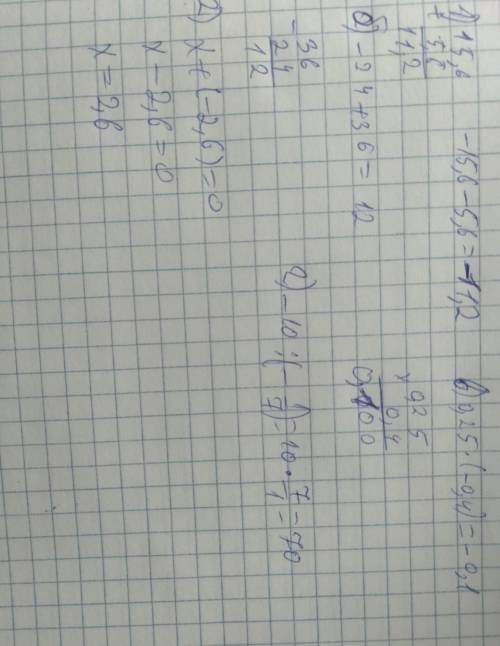 1) 15,6
- 5,6
11,2
-15,6-5,6=-11,2
б) -24+36= 12
-36
24
12
в) 0,25·(-0,4)=-0,1
× 0,25
0,4
0,100
г) -10:(-1/7)=10·7/1=70
2) x+(-2,6)=0
x-2,6=0
x=2,6